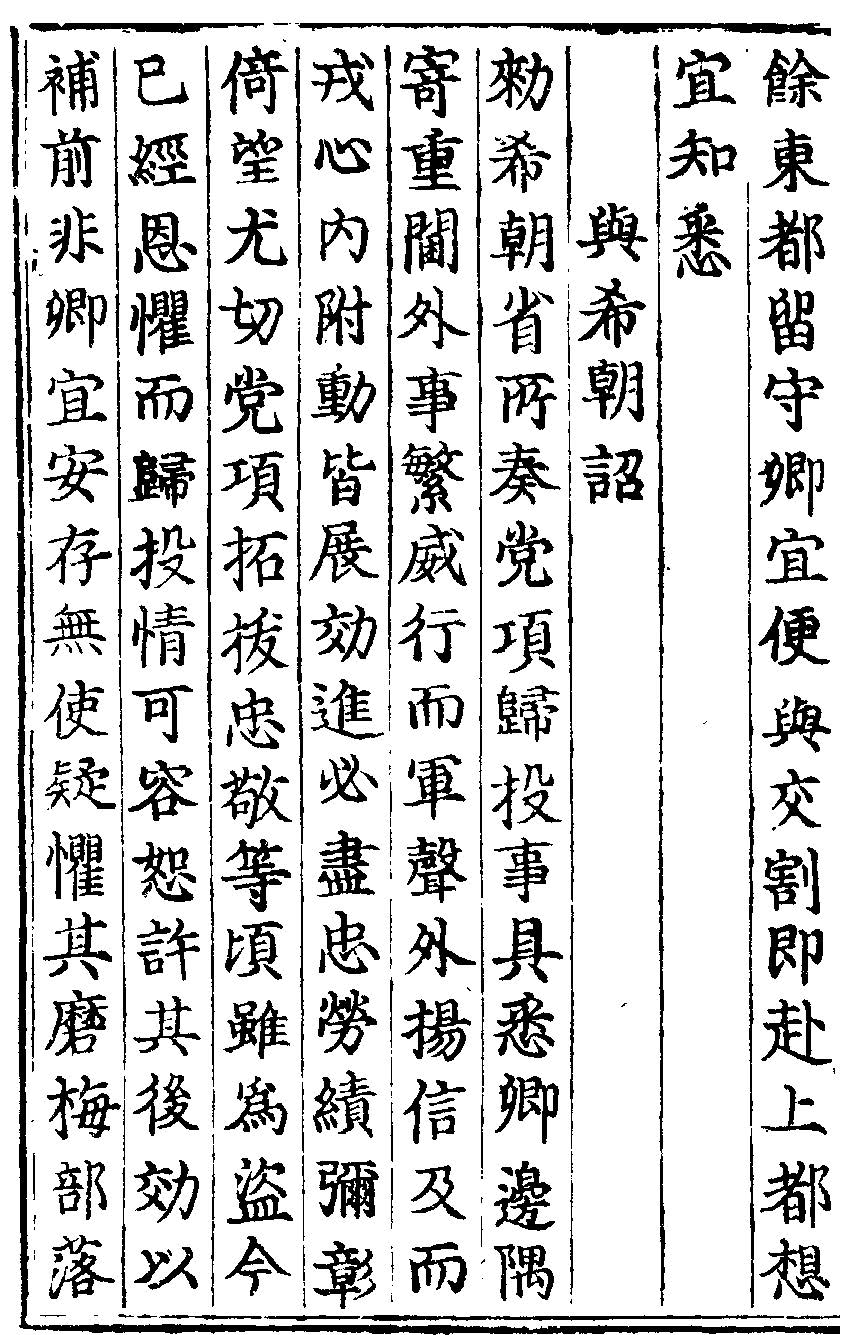 餘東都留守卿宜便與交割即赴上都想
宜知悉
與希朝詔
勑希朝省所奏党項歸投事具悉卿邊隅
寄重閫外事繁威行而軍聲外揚信及而
戎心内附動皆展効進必盡忠勞績彌彰
倚望尤切党項拓拔忠敬等頃雖為盜今
已經恩懼而歸投情可容恕許其後効以
補前非卿宜安存無使疑懼其磨梅部落